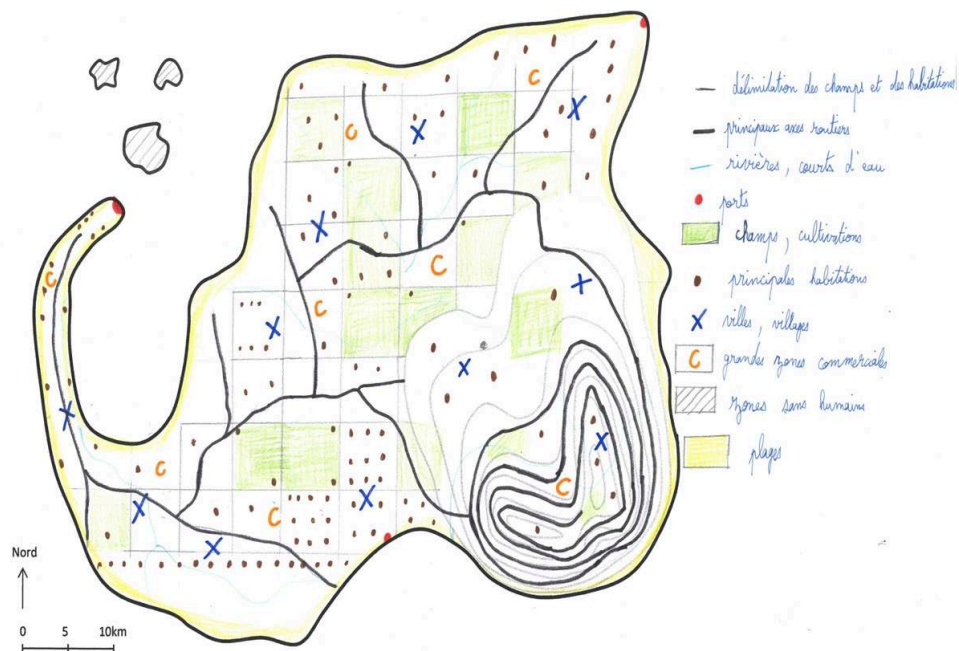 délimilation des champs et des habitations
principaux axes routiers
rivières, courts d'eau
ports
champs, cultivations
principales habitations
villes, villages
C grandes zones commerciales
zones sans humains
plages
C
C
C
C
C
C
C
C
C
Nord
0 5 10km